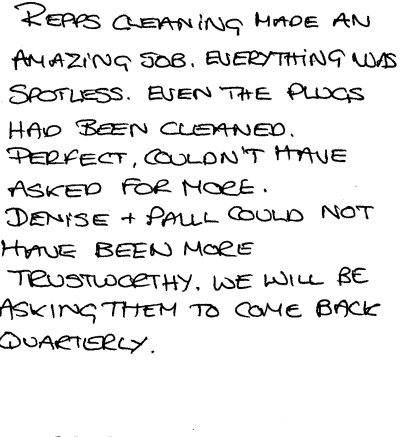 REPPS CLEANING MADE AN
AMAZING JOB. EVERYTHING WAS
SPOTLESS. EVEN THE PLUGS
HAD BEEN CLEANED.
PERFECT, COULDN'T HAVE
ASKED FOR MORE.
DENISE + PAUL COULD NOT
HAVE BEEN MORE
TRUSTWORTHY. WE WILL BE
ASKING THEM TO COME BACK
QUARTERLY.